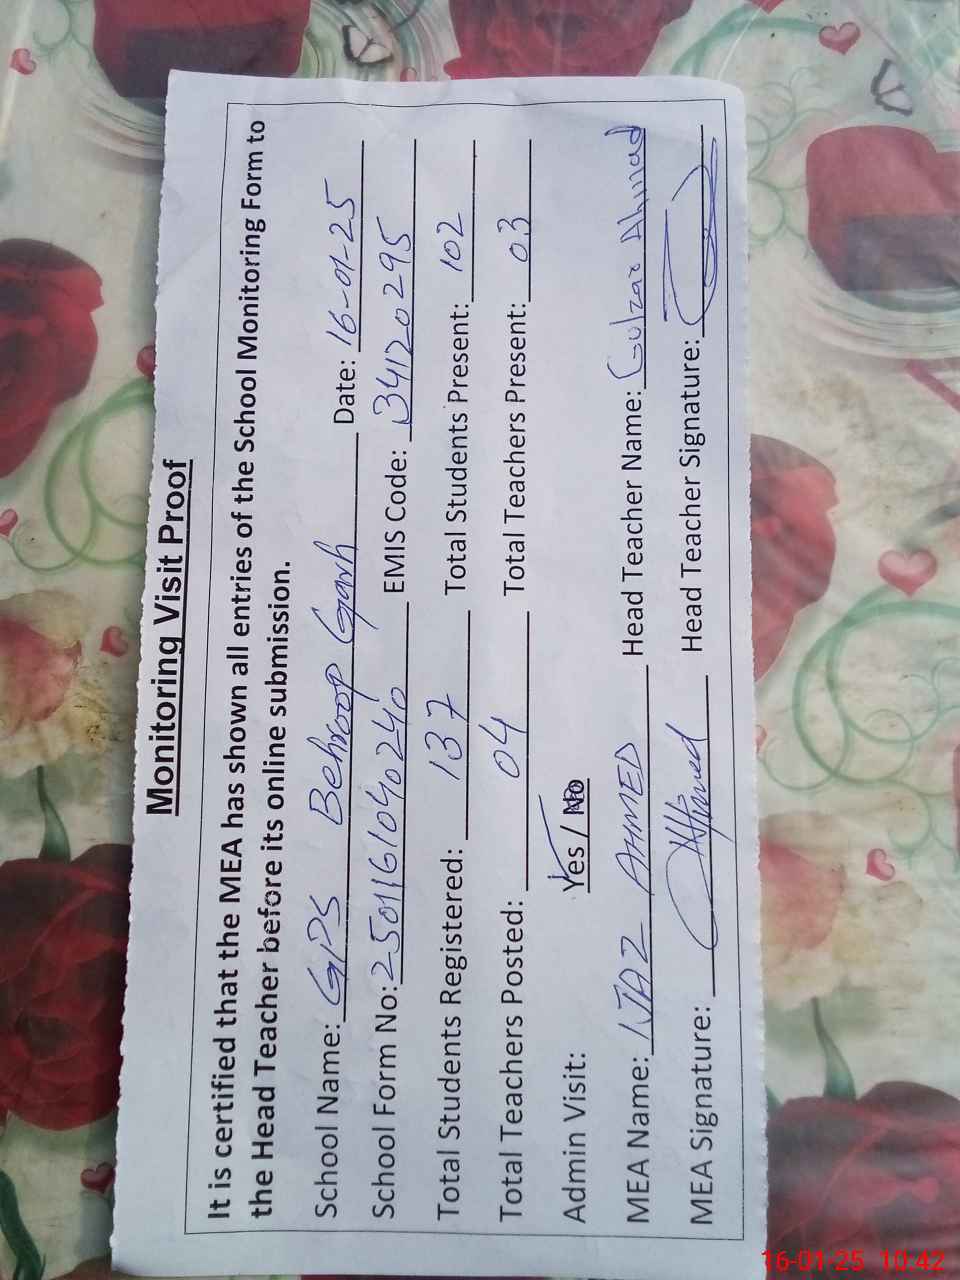 Monitoring Visit Proof
It is certified that the MEA has shown all entries of the School Monitoring Form to
the Head Teacher before its online submission.
School Name: GPS Behroop Garh Date: 16-01-25
School Form No: 2501161040240 EMIS Code: 34120295
Total Students Registered: 137 Total Students Present: 102
Total Teachers Posted: 04 Total Teachers Present: 03
Admin Visit: Yes / No
MEA Name: IJAZ AHMED Head Teacher Name: Gulzar Ahmad
MEA Signature: Ahmed Head Teacher Signature:
16-01-25 10:42